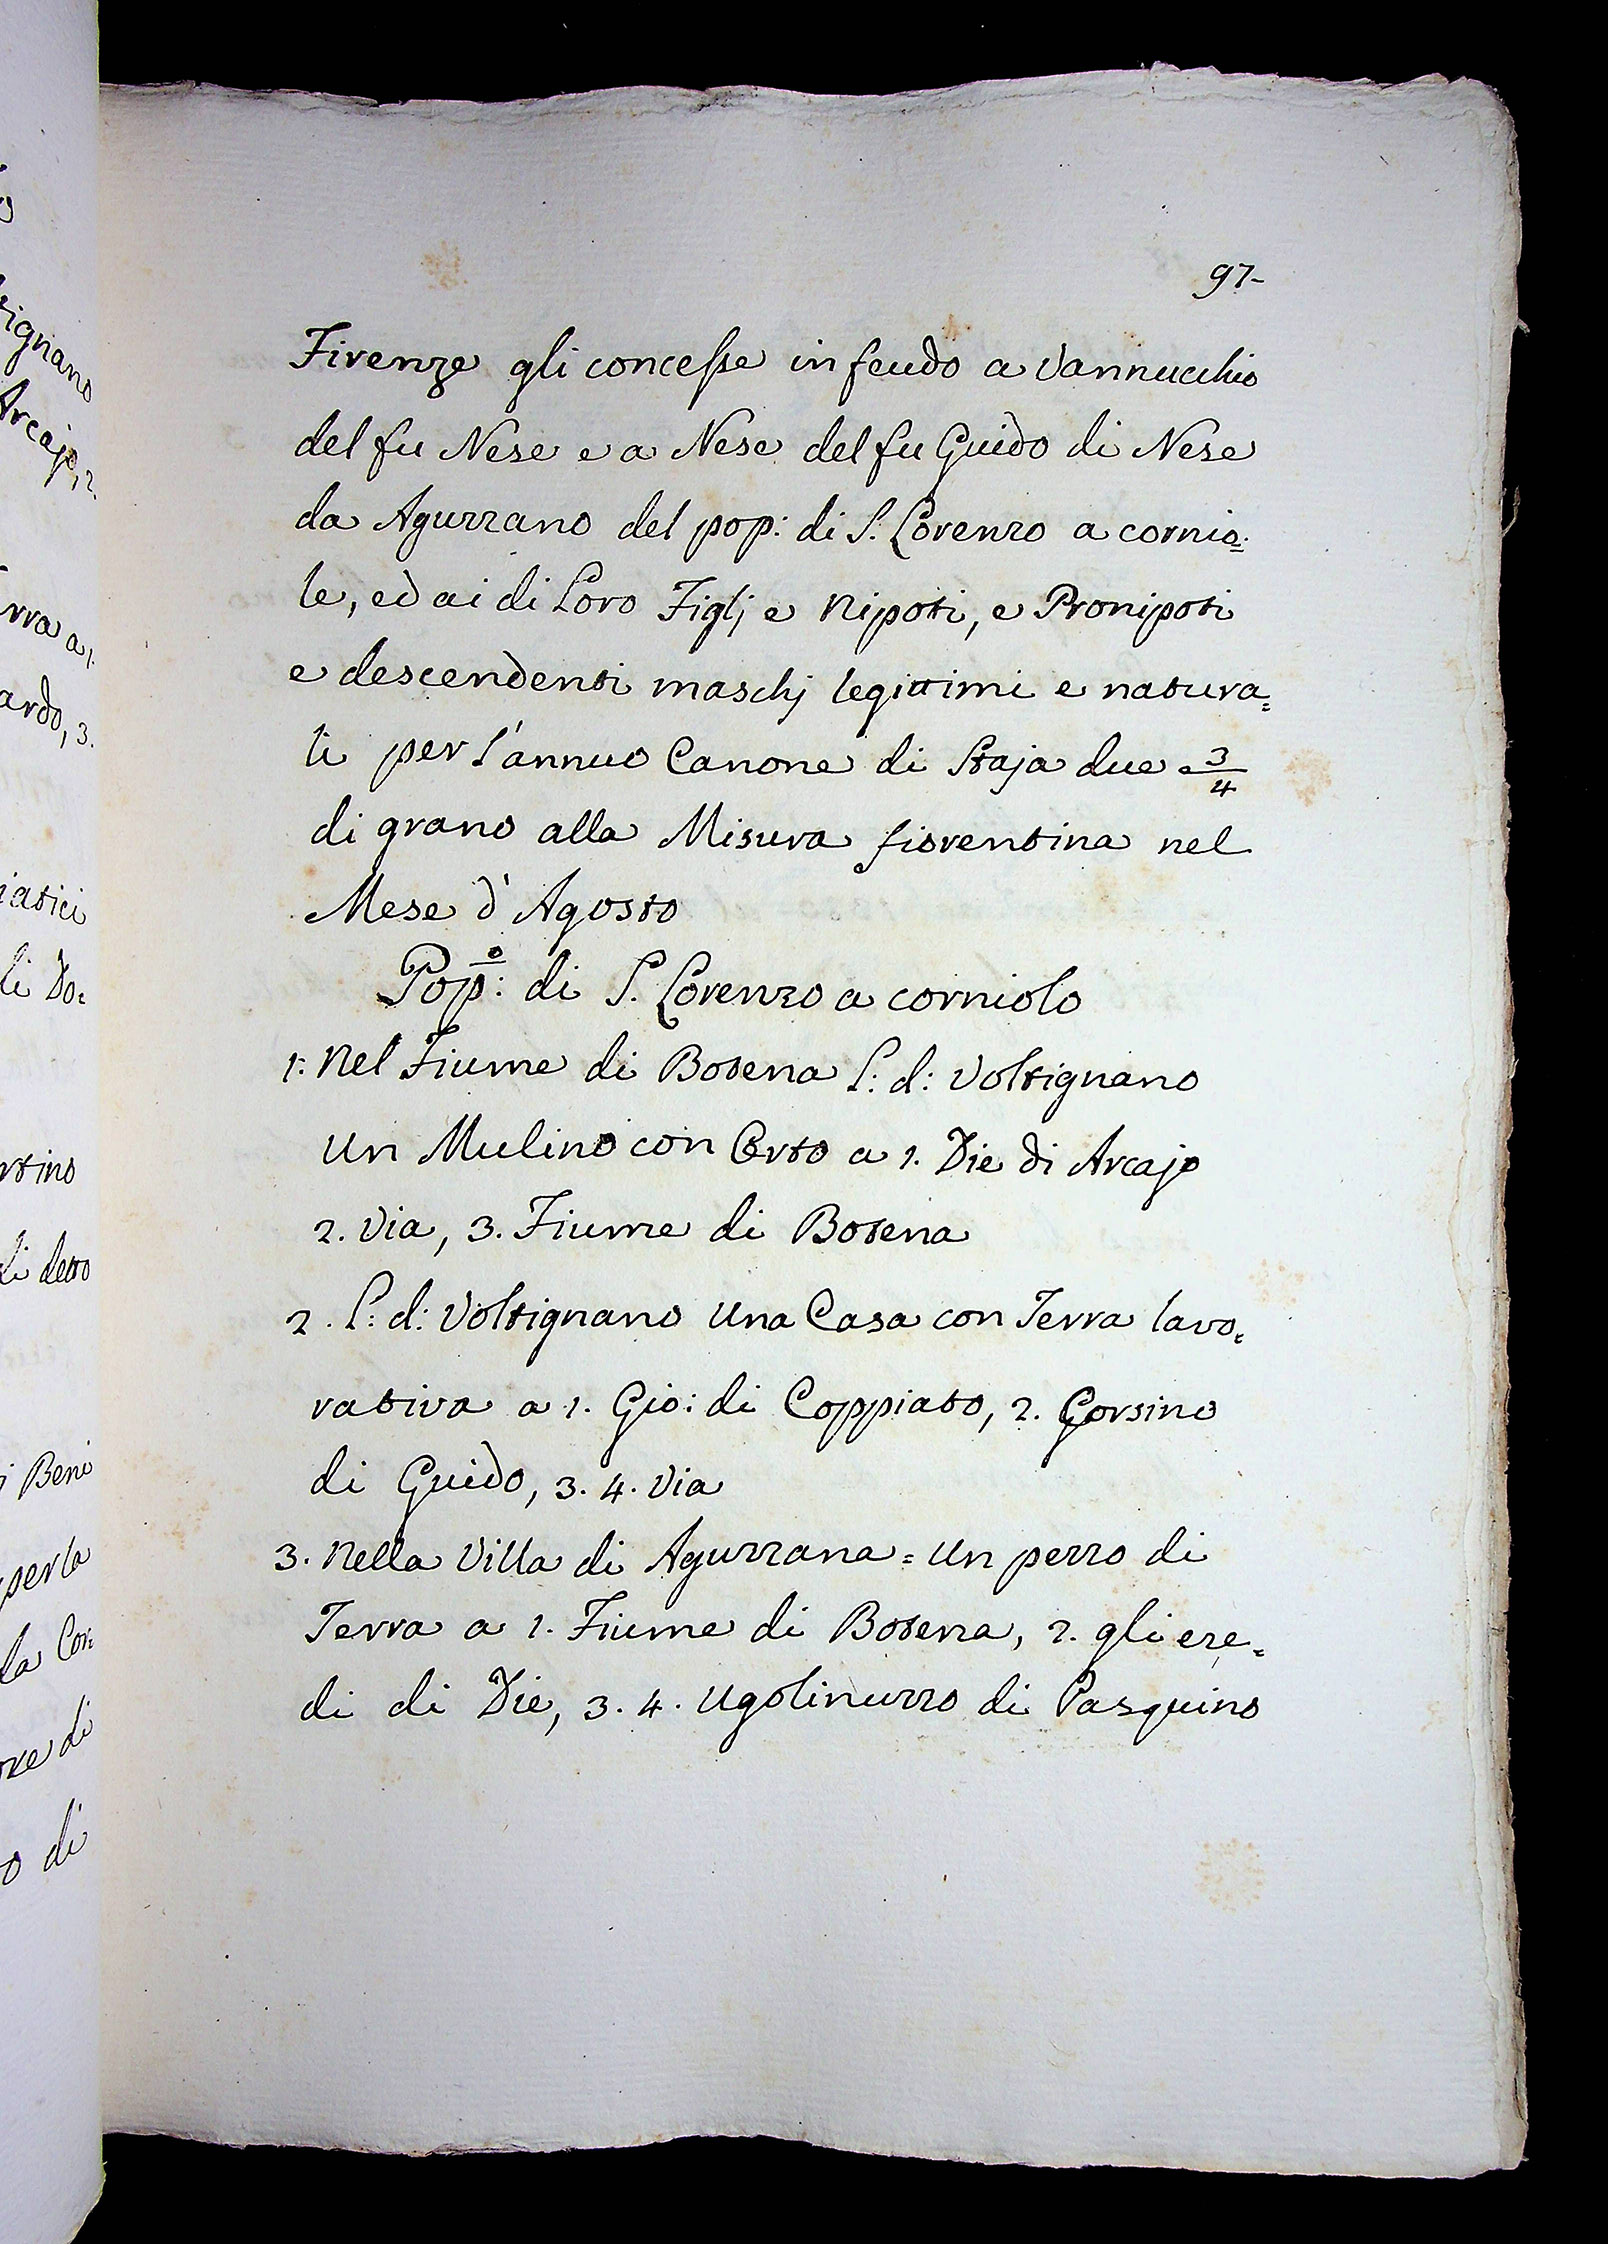 97-
Firenze gli concesse in feudo a Vannucchio
del fu Nese e a Nese del fu Guido di Nese
da Aguzzano del pop: di S. Lorenzo a cornio=
le, ed ai di Loro Figlj e Nipoti, e Pronipoti
e descendenti maschj legittimi e natura=
li per l'annuo Canone di Staja due 3/4
di grano alla Misura fiorentina nel
Mese d'Agosto
Pop:º di S. Lorenzo a corniolo
1: Nel Fiume di Botena L: d: Voltignano
un Mulino con Orto a 1. Die di Arcajo
2. Via, 3. Fiume di Botena
2. L: d: Voltignano una Casa con Terra lavo=
rativa a 1. Gio: di Coppiato, 2. Gorsino
di Guido, 3. 4. Via
3. Nella Villa di Aguzzana = un pezzo di
Terra a 1. Fiume di Botena, 2. gli ere=
di di Die, 3. 4. Ugolinuzzo di Pasquino
tignano
Arcajo, 2.
rra a 1.
ardo, 3.
iatici
li Do=
rtino
di detto
i Beni
per la
la Con=
ore di
o di